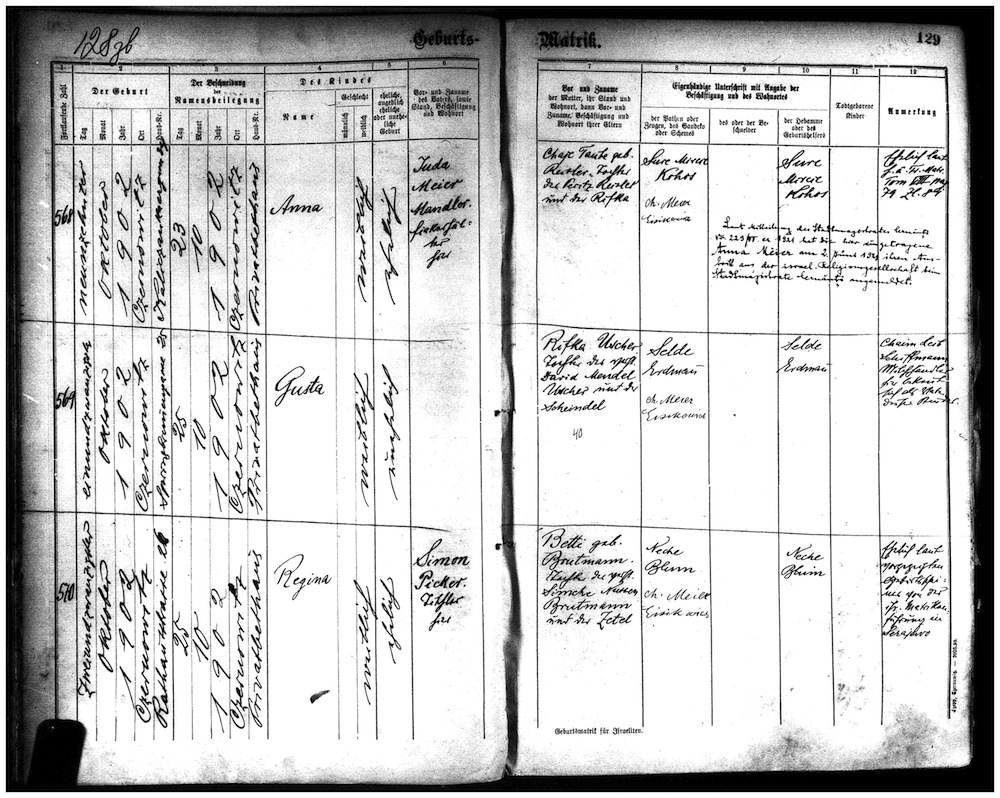 128gb
Geburts-
Matrik.
129
1
2
3
4
5
6
7
8
9
10
11
12
Fortlaufende Zahl
Der Geburt
Tag
Monat
Jahr
Ort
Haus-Nr.
Der Beschneidung
oder
Namensbeilegung
Tag
Monat
Jahr
Ort
Haus-Nr.
Des Kindes
Name
Geschlecht
männlich
weiblich
eheliche,
angeblich
eheliche
oder unehe-
liche
Geburt
Vor- und Zuname
des Vaters, sowie
Stand, Beschäftigung
und Wohnort
Vor und Zuname
der Mutter, ihr Stand und
Wohnort, dann Vor- und
Zuname, Beschäftigung und
Wohnort ihrer Eltern
Eigenhändige Unterschrift mit Angabe der
Beschäftigung und des Wohnortes
der Pathen oder
Zeugen, des Sandeks
oder Schames
des oder der Be-
schneider
der Hebamme
oder des
Geburtshelfers
Todtgeborene
Kinder
Anmerkung
568
neunzehnter
Oktober
1902
Czernowitz
23
10
1902
Czernowitz
Privatbethaus
Anna
weiblich
ehelich
Juda
Meier
Mandler
hier
Chaje Taube geb.
Resler, Tochter
des Peretz Resler
und der Rifka
Sure Mesere
Kohos
ch. Meier
Eisikowicz
Sure
Mesere
Kohos
Ehelich laut
Tom VIII pag
79 Zl. 84
Laut Mitteilung des Stadtmagistrates
ex 1921 hat die hier eingetragene
Anna Meier am 2. Juni 1921 ihren Aus-
tritt aus der israel. Religionsgesellschaft beim
Stadtmagistrate angemeldet.
569
einundzwanzigster
Oktober
1902
Czernowitz
Springbrunnengasse 25
25
10
1902
Czernowitz
Privatbethaus
Gusta
weiblich
unehelich
Rifka Uscher
Tochter des
David Mendel
Uscher und der
Scheindel
40
Selde
Erdmau
ch. Meier
Eisikowicz
Selde
Erdmau
Chaim Leib
Schiffmann
Milchhändler
hier bekennt
sich als Vater
dieses Kindes
570
Zweiundzwanzigster
Oktober
1902
Czernowitz
Rathausstrasse 26
25
10
1902
Czernowitz
Privatbethaus
Regina
weiblich
ehelich
Simon
Picker
Tischler
hier
Betti geb.
Breitmann
Tochter des
Simche Nussen
Breitmann
und der Zetel
Neche
Blum
ch. Meier
Eisikowicz
Neche
Blum
Ehelich laut
vorgezeigten
der
isr. Matriken-
führung in
Serajewo
Geburtsmatrik für Israeliten.